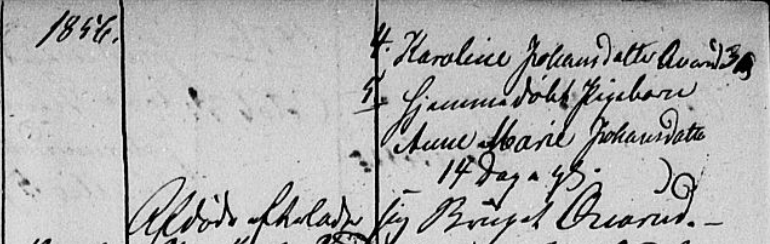 1856.
4. Karoline Johansdatter Qvarud 3
5 Hjemmedøbt Pigebarn
Anne Marie Johansdatter
14 Dage gl. )
Afdøde efterlader sig Bruget Qvarud. –